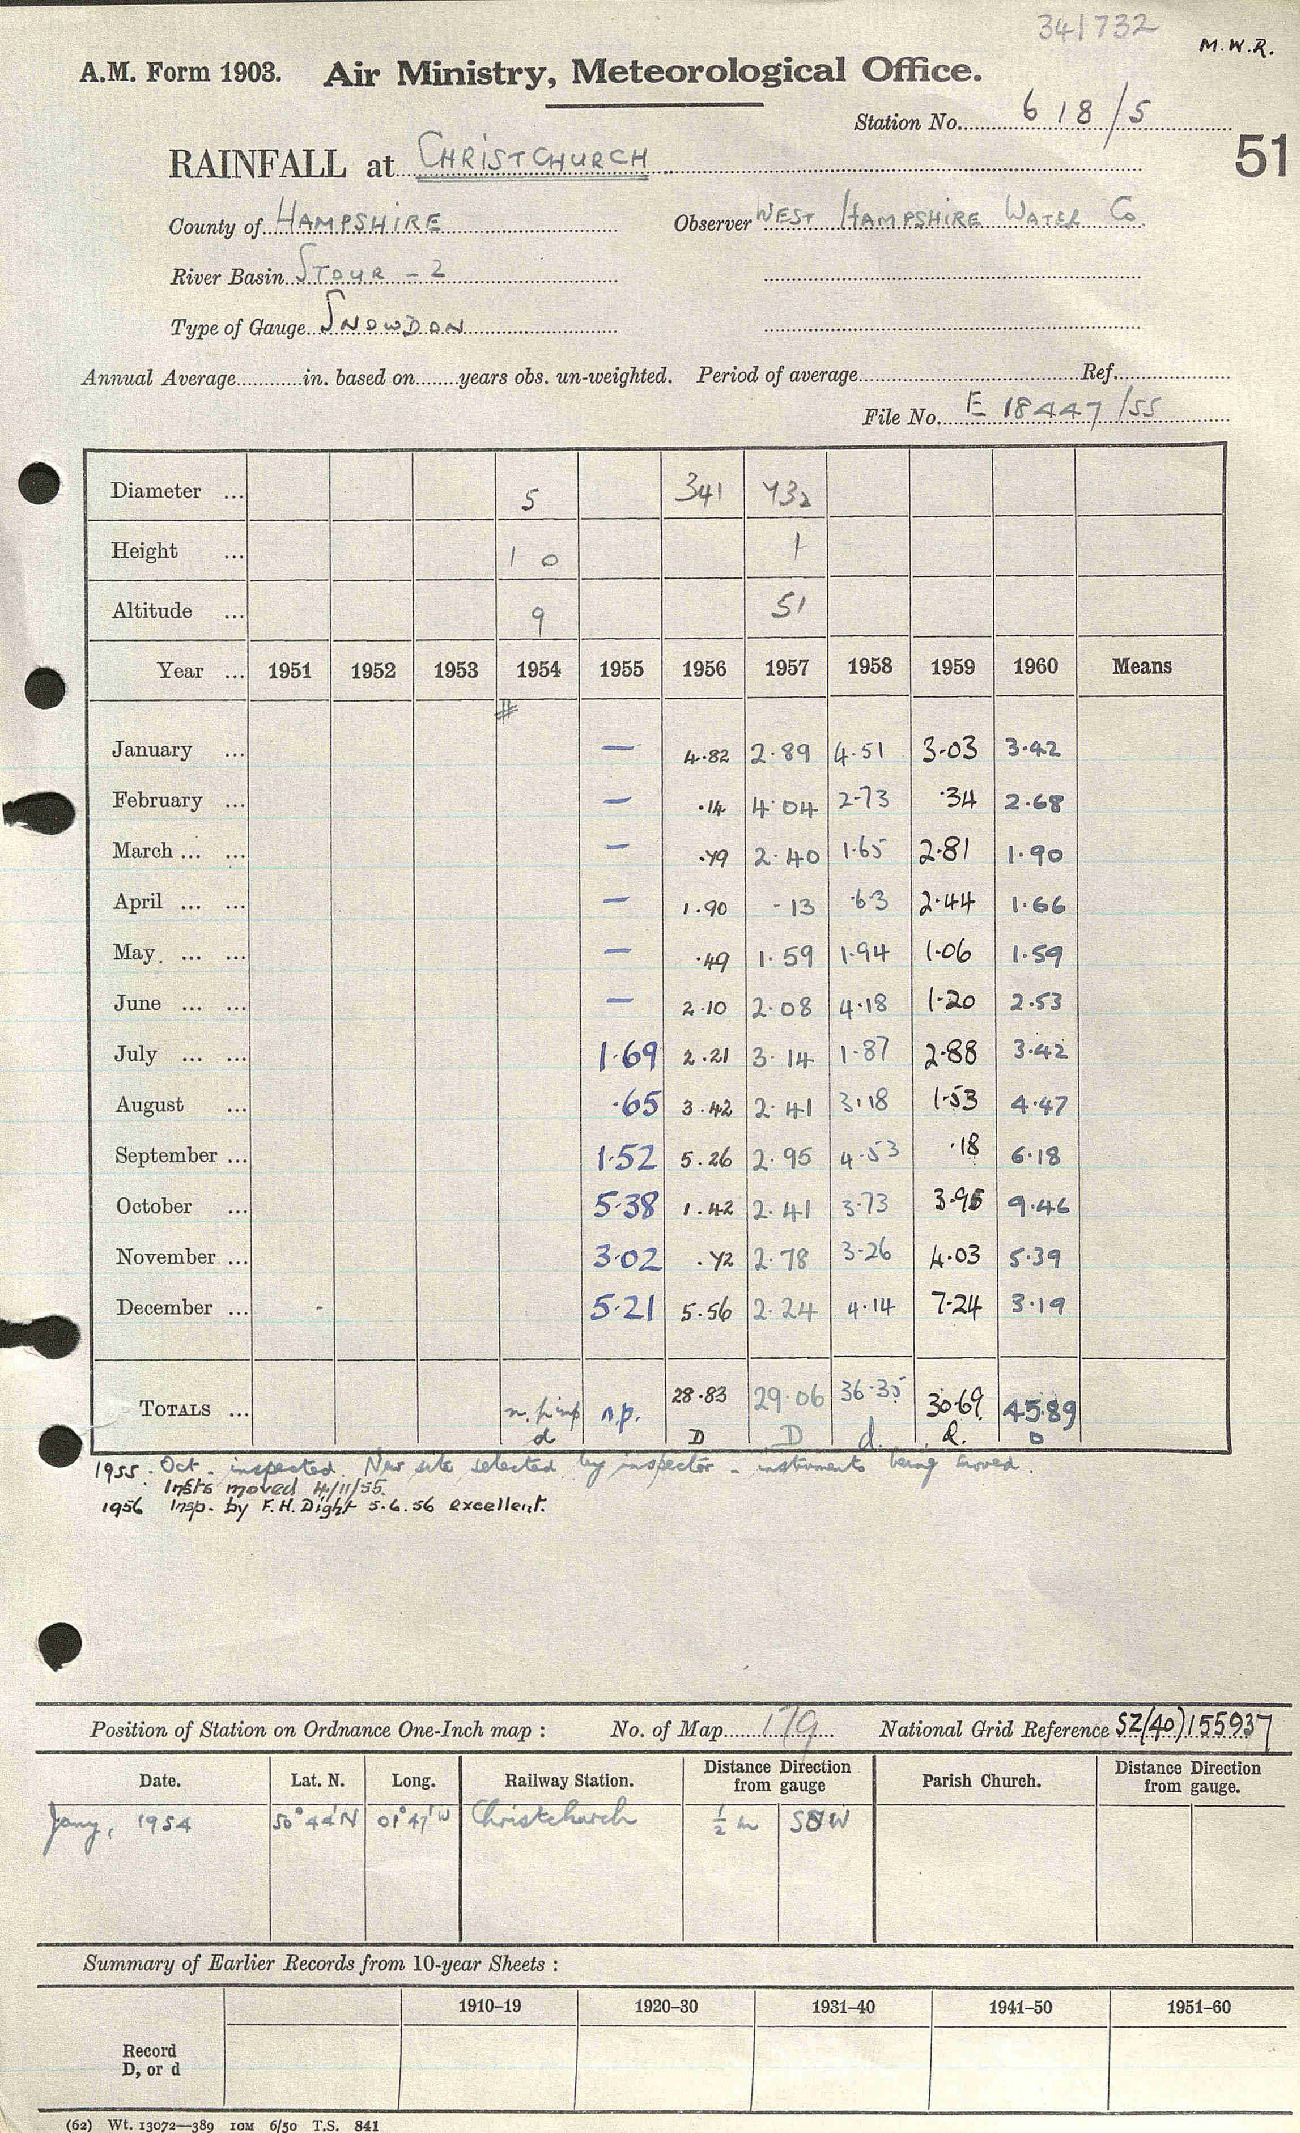 341732
M.W.R.
A.M. Form 1903. Air Ministry, Meteorological Office.
Station No. 618/5
51
RAINFALL at CHRISTCHURCH
County of HAMPSHIRE Observer WEST HAMPSHIRE WATER Co.
River Basin STOUR - 2
Type of Gauge SNOWDON
Annual Average in. based on years obs. un-weighted. Period of average Ref.
File No. E 18447/55
Diameter ... 5 341 732
Height ... 1 0 1
Altitude ... 9 51
Year ... 1951 1952 1953 1954 1955 1956 1957 1958 1959 1960 Means
#
January ... — 4.82 2.89 4.51 3.03 3.42
February ... — .14 4.04 2.73 .34 2.68
March ... ... — .79 2.40 1.65 2.81 1.90
April ... ... — 1.90 .13 .63 2.44 1.66
May ... ... — .49 1.59 1.94 1.06 1.59
June ... ... — 2.10 2.08 4.18 1.20 2.53
July ... ... 1.69 2.21 3.14 1.87 2.88 3.42
August ... .65 3.42 2.41 3.18 1.53 4.47
September ... 1.52 5.26 2.95 4.53 .18 6.18
October ... 5.38 1.42 2.41 3.73 3.95 9.46
November ... 3.02 .72 2.78 3.26 4.03 5.39
December ... 5.21 5.56 2.24 4.14 7.24 3.19
TOTALS ... n.p. 28.83 29.06 36.35 30.69 45.89
d D D d. d. D
1955. Oct. inspected. New site selected by inspector - instruments being moved.
Insts moved 4/11/55.
1956 Insp. by F.H. Dight 5.6.56 excellent.
Position of Station on Ordnance One-Inch map : No. of Map 179 National Grid Reference SZ/(40)155937
Date. Lat. N. Long. Railway Station. Distance Direction from gauge Parish Church. Distance Direction from gauge.
Jany, 1954 50°44'N 01°47'W Christchurch ½ m SSW
Summary of Earlier Records from 10-year Sheets :
1910–19 1920–30 1931–40 1941–50 1951–60
Record
D, or d
(62) Wt. 13072—389 10M 6/50 T.S. 841